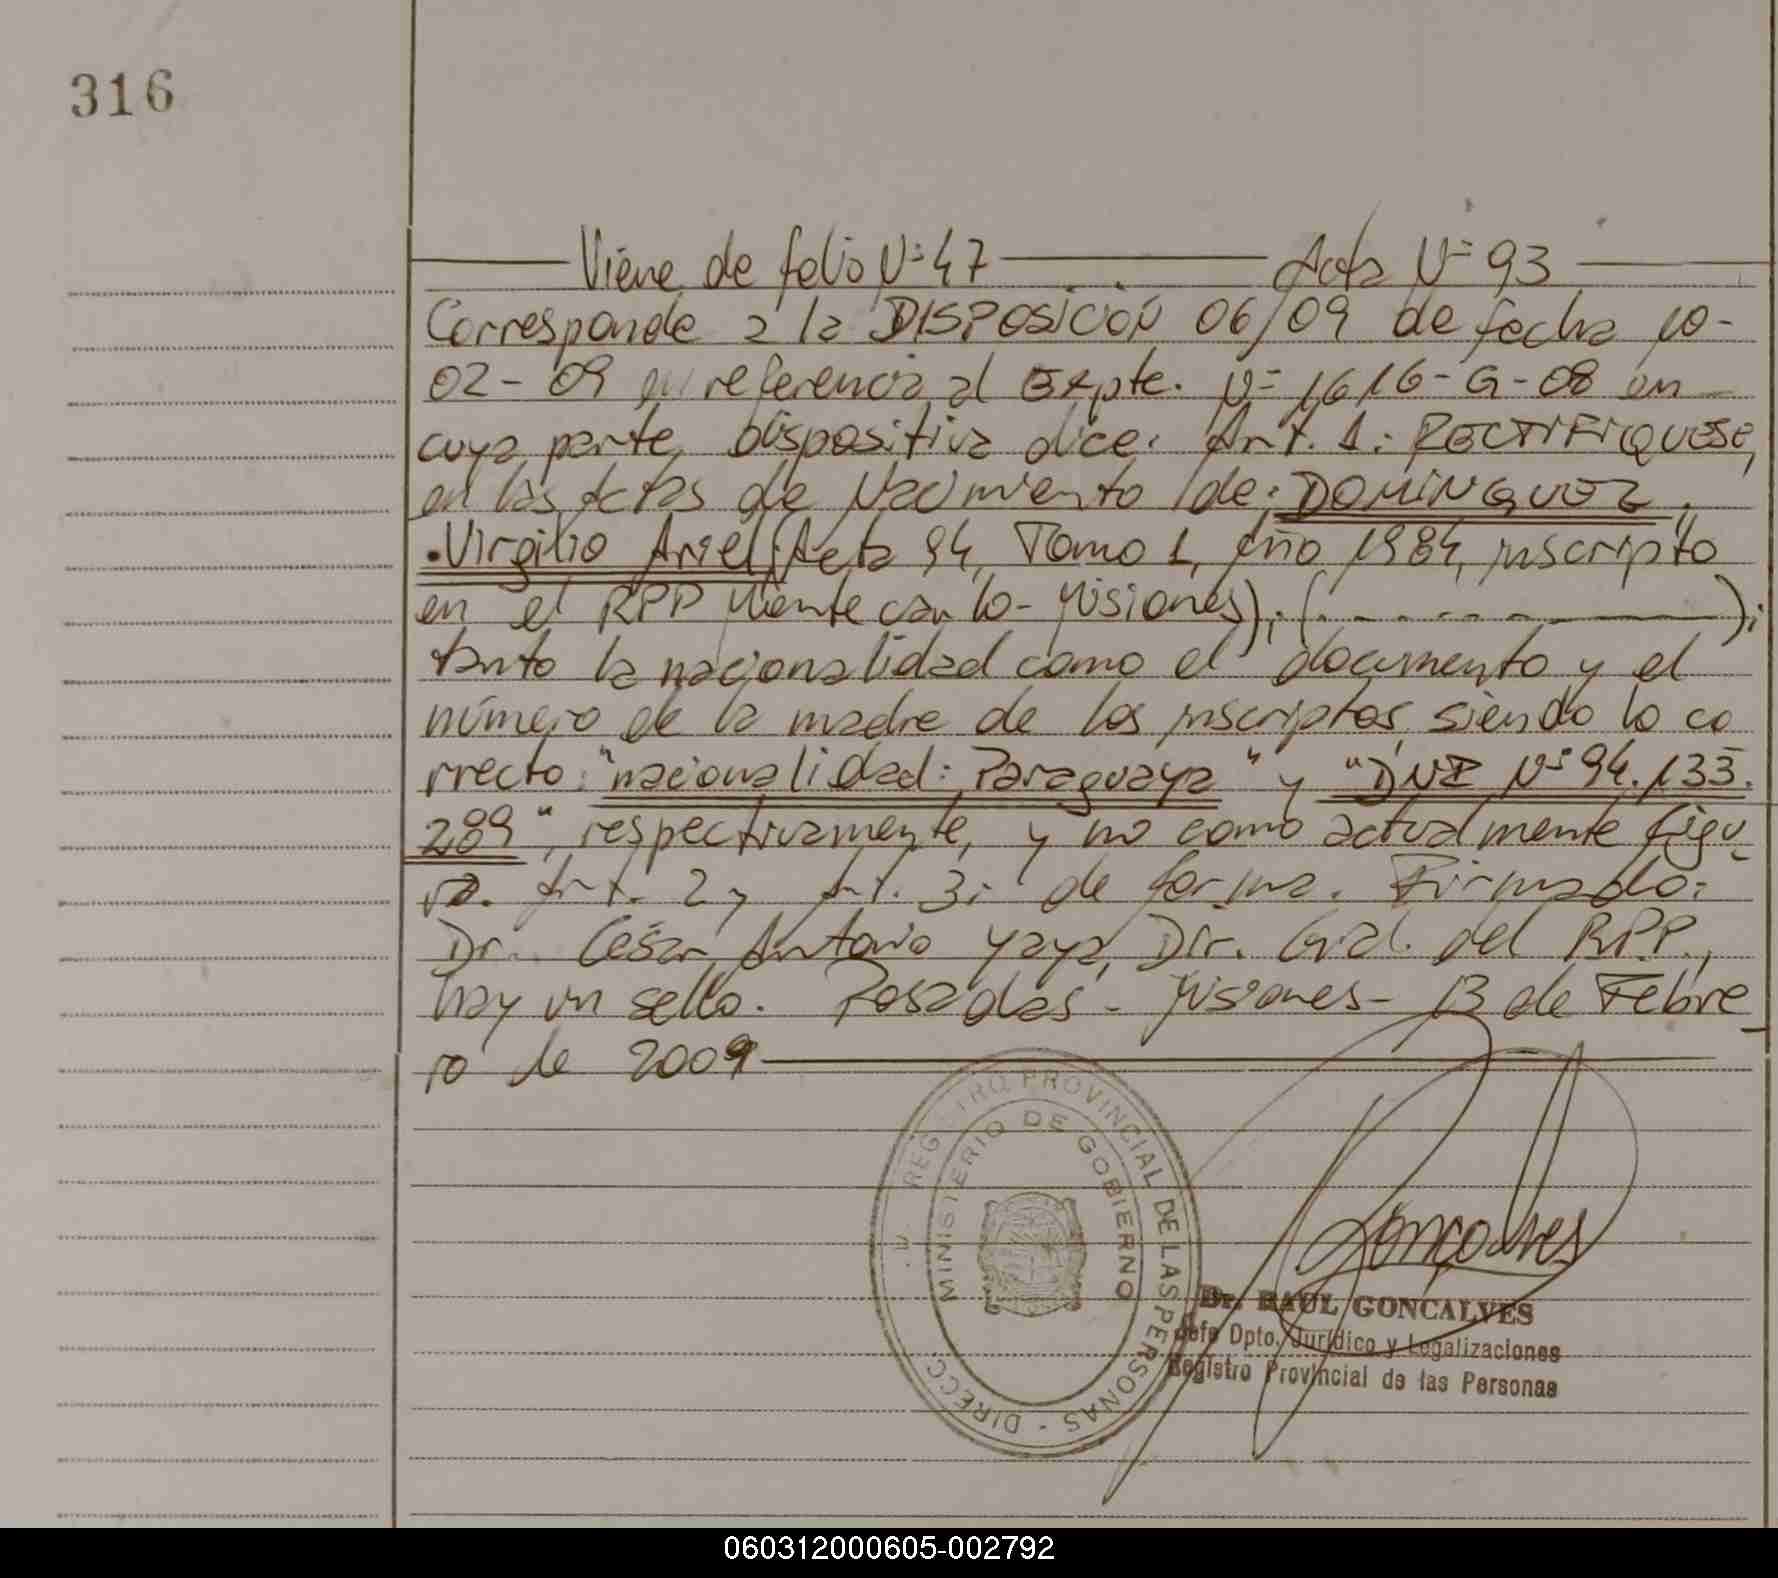 316
Viene de folio Nº 47 Acta Nº 93
Corresponde a la DISPOSICIÓN 06/09 de fecha 10-
02-09 en referencia al Expte. Nº 1616-G-08 en
cuya parte dispositiva dice: Art. 1: RECTIFIQUESE,
en las Actas de Nacimiento de: DOMINGUEZ,
Virgilio Ariel (Acta 94, Tomo 1, Año 1984, inscripto
en el RPP Montecarlo-Misiones); ( - - - - );
tanto la nacionalidad como el documento y el
número de la madre de los inscriptos, siendo lo co
rrecto: "nacionalidad: Paraguaya" y "DNI Nº 94.133.
289", respectivamente, y no como actualmente figu_
ra. Art. 2 y Art. 3: de forma. Firmado:
Dr. César Antonio Yaya, Dir. Gral. del RPP.,
hay un sello. Posadas - Misiones - 13 de Febre_
ro de 2009
REGISTRO PROVINCIAL DE LAS PERSONAS - DIRECC.
MINISTERIO DE GOBIERNO
Goncalves
Dr. RAUL GONCALVES
Jefe Dpto. Jurídico y Legalizaciones
Registro Provincial de las Personas
060312000605-002792